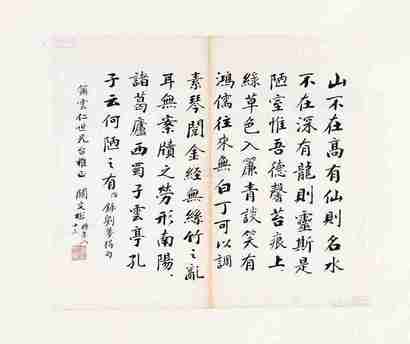 山不在高有仙則名水
不在深有龍則靈斯是
陋室惟吾德馨苔痕上
綠草色入簾青談笑有
鴻儒往來無白丁可以調
素琴閱金經無絲竹之亂
耳無案牘之勞形南陽
諸葛廬西蜀子雲亭孔
子云何陋之有 錄劉夢得句
雲仁世兄台雅正 關文彬